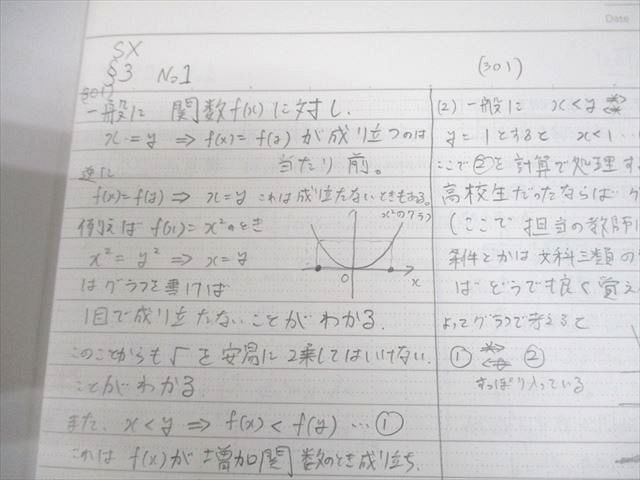 Date
SX
§3 No1
301)
一般に 関数f(x)に対し、
x=y ⇒ f(x)=f(y) が成り立つのは
当たり前。
逆に
f(x)=f(y) ⇒ x=y これは成り立たないときもある。
例えば f(x)=x²のとき
x²のグラフ
x²=y² ⇒ x=y
0 x
はグラフを書けば
1目で成り立たないことがわかる.
このことからも√を安易に2乗してはいけない.
ことがわかる
また、x<y ⇒ f(x)<f(y) …①
これは f(x)が増加関数のとき成り立ち、
(301)
(2) 一般に x<y
y=1とすると x<1
ここで②を計算で処理す
高校生だったならば
(ここで担当の教師
条件とかは文科三類の
ばどうでも良く覚え
よってグラフで考えると
① ⇄ ②
すっぽり入っている